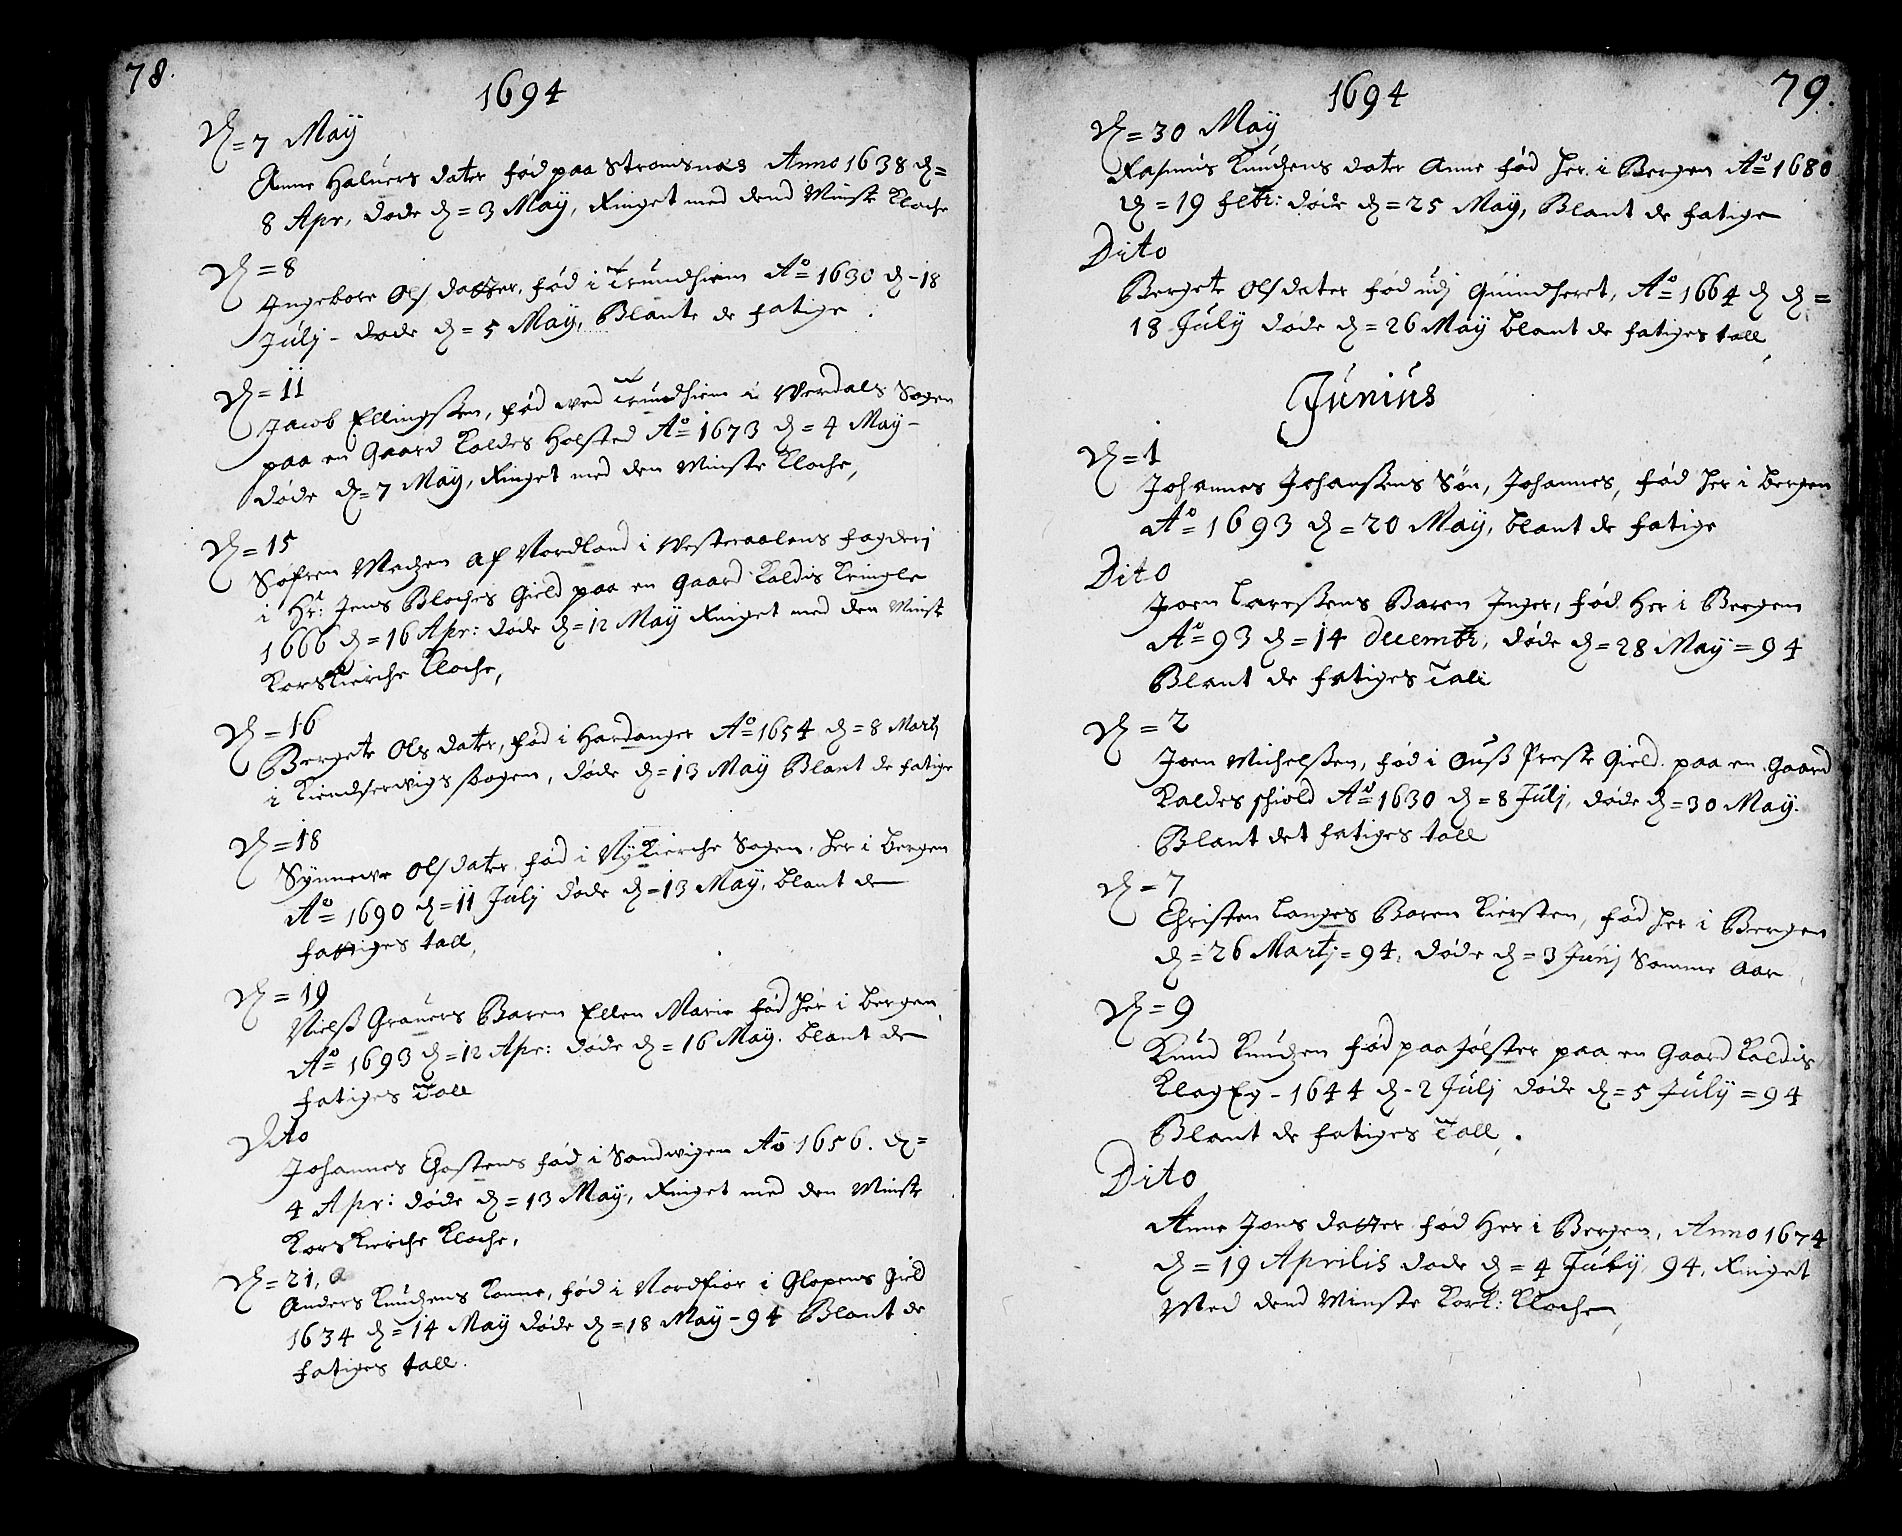 78.
1694
D = 7 Maÿ
Anne Halvers dater fød paa Strømsnæs Anno 1638 D =
8 Apr, døde D = 3 Maÿ, Ringet med dend Minste Kloche
D = 8
Ingebore Ols datter, fød i Trundhiem Ao 1630 D - 18
Julj - døde D = 5 Maÿ, Blant de fatige.
D = 11
Jacob Ellingssen, fød ved Trundhiem i Verdals Sogen
paa en Gaard Kaldes Holsted Ao 1673 D = 4 Maÿ -
døde D = 7 Maÿ, Ringet med den Minste Kloche,
D = 15
Søfren Madzen af Nordland i Westeraalens fogderj
i Hr: Jens Bloches Gield paa en Gaard Kaldis Kringle
1666 D = 16 Apr: døde D = 12 Maÿ Ringet med den Minste
Korskierche Kloche,
D = 16
Bergete Ols dater, fød i Hardanger Ao 1654 D = 8 Martj
i Kiendservigs sogen, døde D = 13 Maÿ Blant de fatige
D = 18
Synneve Ols dater, fød i Nÿkierche Sogen, her i bergen
Ao 1690 D = 11 Julj døde D = 13 Maÿ, blant de
fattiges tall,
D = 19
Nielss Gravers Baren Ellen Marie fød her i bergen,
Ao 1693 D = 12 Apr: døde D = 16 Maÿ. blant de
fatiges Tall
Dito
Johannes Chastens fød i Sandvigen Ao 1656. D =
4 Apr: døde D = 13 Maÿ, Ringet med den Minste
Korskierche Kloche,
D = 21,
Anders Knudzens Konne, fød i Nordfior i Glopens Gield
1634 D = 14 Maÿ døde D = 18 Maÿ - 94 Blant de
fatiges tall.
1694
79.
D = 30 Maÿ
Rasmus Knudzens dater Anne fød her i Bergen Ao 1680
D = 19 febr: døde D = 25 Maÿ, Blant de fatige
Dito
Bergete Ols dater fød udj Quindheret, Ao 1664 D D =
18 Julÿ døde D = 26 Maÿ blant de fatiges tall,
Junius
D = 1
Johannes Johanssens Søn, Johannes, fød her i bergen
Ao 1693 D = 20 Maÿ, blant de fatige
Dito
Joen Larssens Baren Inger, fød Her i Bergen
Ao 93 D = 14 decembr, døde D = 28 Maÿ = 94
Blant de fatiges Tall
D = 2
Joen Michelssen, fød i Ouss Preste Gield paa en Gaard
Kaldes schiold Ao 1630 D = 8 Julj, døde D = 30 Maÿ.
Blant det fatiges tall
D = 7
Christen Langes Baren Kiersten, fød her i Bergen
D = 26 Martj = 94, døde D = 3 Junj Samme Aar
D = 9
Knud Knudzen fød paa Jølster paa en Gaard Kaldis
KlagEg - 1644 D - 2 Julj døde D = 5 Julÿ = 94
Blant de fatiges Tall,.
Dito
Anne Jons datter fød Her i Bergen, Anno 1674
D = 19 Aprilis døde D = 4 Julÿ, 94, Ringet
Med dend Minste Kork: Kloche,